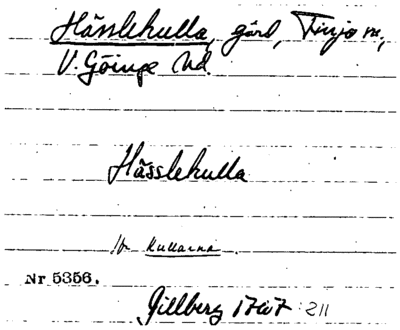 Hässlehulla, gård, Finja sn,
V. Göinge hd.
Hässlehulla
Kullarna.
Nr 5356.
Gillberg 1767: 211